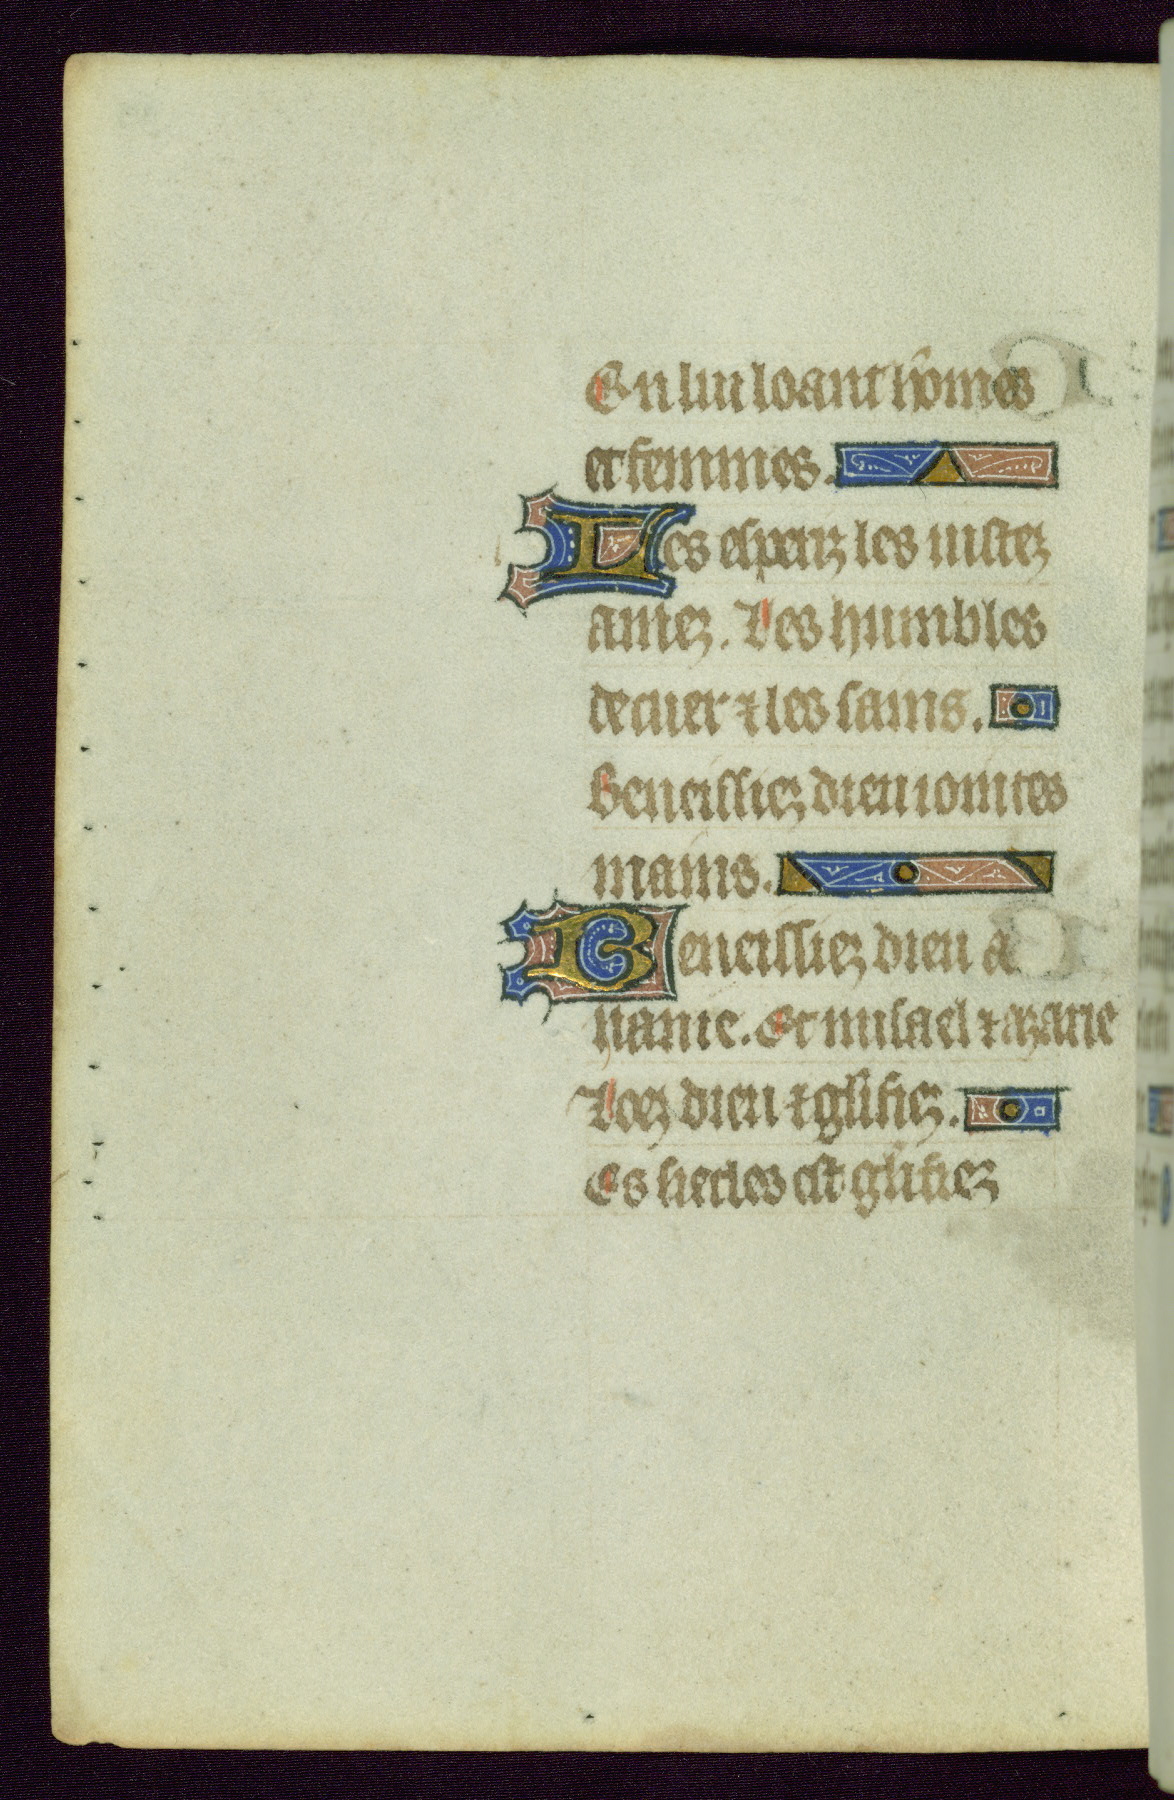 En lui loant hōmes
et femmes.
Les esperiz les iustez
amez. Les humbles
de cuer ⁊ les sains.
Beneissiez dieu iointes
mains.
Beneissiez dieu a
nanie. Et misael ⁊ azarie
Loez dieu ⁊ glifiez.
Es siecles est glifiez